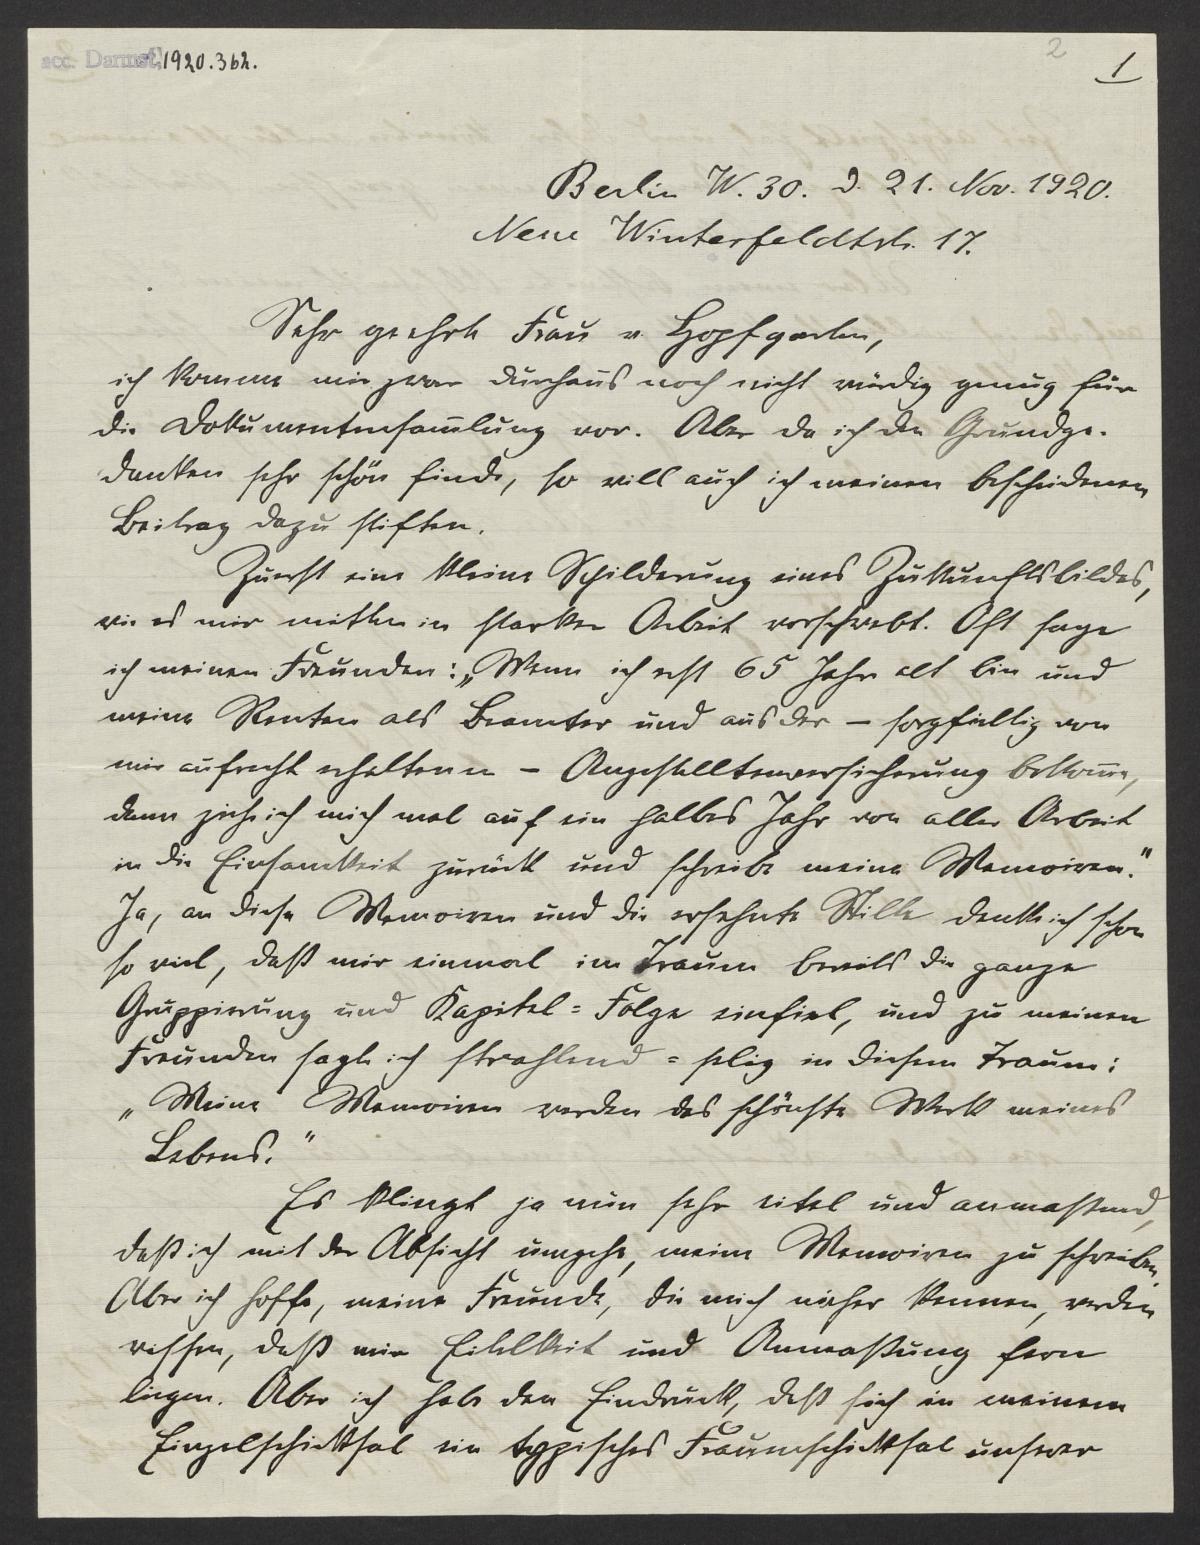 acc. Darmst. 1920.362.
2
1
Berlin W. 30. d. 21. Nov. 1920.
Neue Winterfeldtstr. 17.
Sehr geehrte Frau v. Hopfgarten,
ich komme mir zwar durchaus noch nicht würdig genug für
die Dokumentensam̄lung vor. Aber da ich den Grundge-
danken sehr schön finde, so will auch ich meinen bescheidenen
Beitrag dazu stiften.
Zuerst eine kleine Schilderung eines Zukunftsbildes,
wie es mir mitten in starker Arbeit vorschwebt. Oft sage
ich meinen Freunden: „Wenn ich erst 65 Jahr alt bin und
meine Renten als Beamter und aus der – sorgfältig von
mir aufrecht erhaltenen – Angestelltenversicherung bekom̄e,
dann zieh ich mich mal auf ein halbes Jahr von aller Arbeit
in die Einsamkeit zurück und schreibe meine Memoiren."
Ja, an diese Memoiren und die ersehnte Stille denke ich schon
so viel, daß mir einmal im Traum bereits die ganze
Gruppierung und Kapitel-Folge einfiel, und zu meinen
Freunden sagte ich strahlend-selig in diesem Traum:
„Meine Memoiren werden das schönste Werk meines
Lebens."
Es klingt ja nun sehr eitel und anmaßend,
daß ich mit der Absicht umgehe, meine Memoiren zu schreiben.
Aber ich hoffe, meine Freunde, die mich näher kennen, werden
wissen, daß mir Eitelkeit und Anmaßung fern
liegen. Aber ich habe den Eindruck, daß sich in meinem
Einzelschicksal ein typisches Frauenschicksal unserer